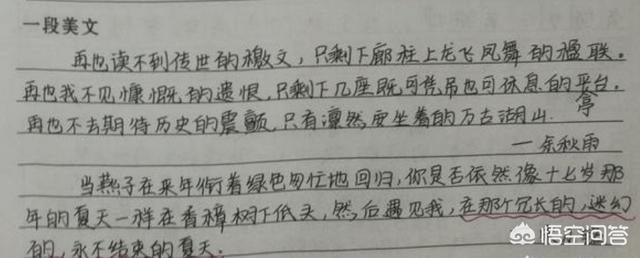 一段美文
再也读不到传世的檄文，只剩下廊柱上龙飞凤舞的楹联。
再也找不见慷慨的遗恨，只剩下几座既可凭吊也可休息的亭台。
再也不去期待历史的震颤，只有凛然安坐着的万古湖山。
—余秋雨
当燕子在来年衔着绿色匆忙地回归，你是否依然像十七岁那
年的夏天一样在香樟树下低头，然后遇见我，在那个冗长的，迷幻
的，永不结束的夏天。
悟空问答